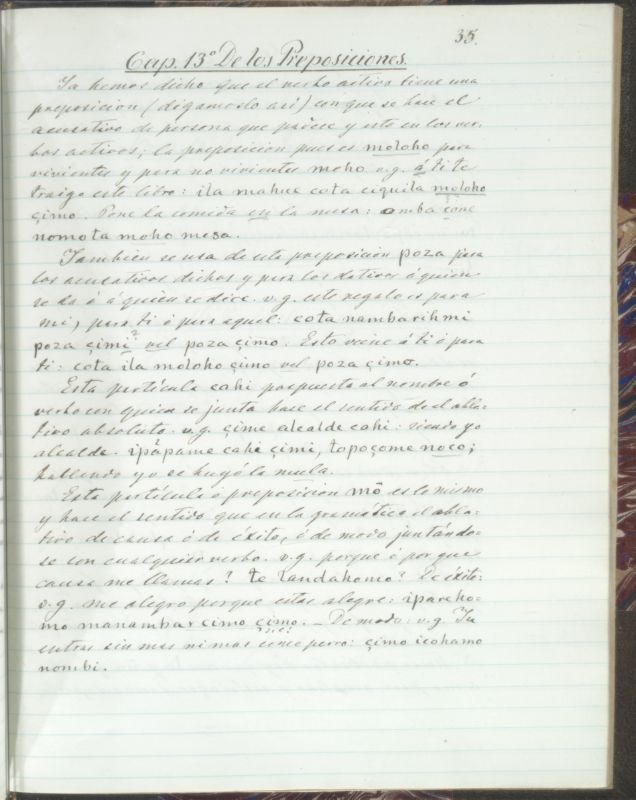 35.
Cap. 13º De los Preposiciones.
Ya hemos dicho que el verbo activo tiene una
preposicion (digamoslo asi) con que se hace el
acusativo de persona que padece y esto en los ver-
bos activos; la preposicion pues es moloho para
vivientes y para no vivientes moho v.g. á ti te
traigo este libro: ila mahue cota ciquila moloho
çimo. Pone la comida en la mesa: amba çone
nomota moho mesa.
Tambien se usa de esta preposicion poza para
los acusativos dichos y para los dativos á quien
se da ó á quien se dice. v.g. este regalo es para
mi, para ti ó para aquel: cota nambarihmi
poza çimi² vel poza çimo. Esto viene á ti ó para
ti: cota ila moloho çimo vel poza çimo.
Esta particula cahi pospuesta al nombre ó
verbo con quien se junta hace el sentido de el abla-
tivo absoluto. v.g. çime alcalde cahi: siendo yo
alcalde. ipapame cahi çimi, topoçome noco;
hablando yo se huyó la mula.
Esta particula ó preposicion mô es lo mismo
y hace el sentido que en la gramática el abla-
tivo de causa ó de éxito, ó de modo juntándo-
se con cualquier verbo. v.g. porque ó por que
causa me llamas? te landahomo? De éxito:
v.g. me alegro porque estas alegre: ipareho-
mo manambar cimo çimo. _ De modo: v.g. Tu
entras sin mas ni mas como perro: çimo icohamo
nombi.